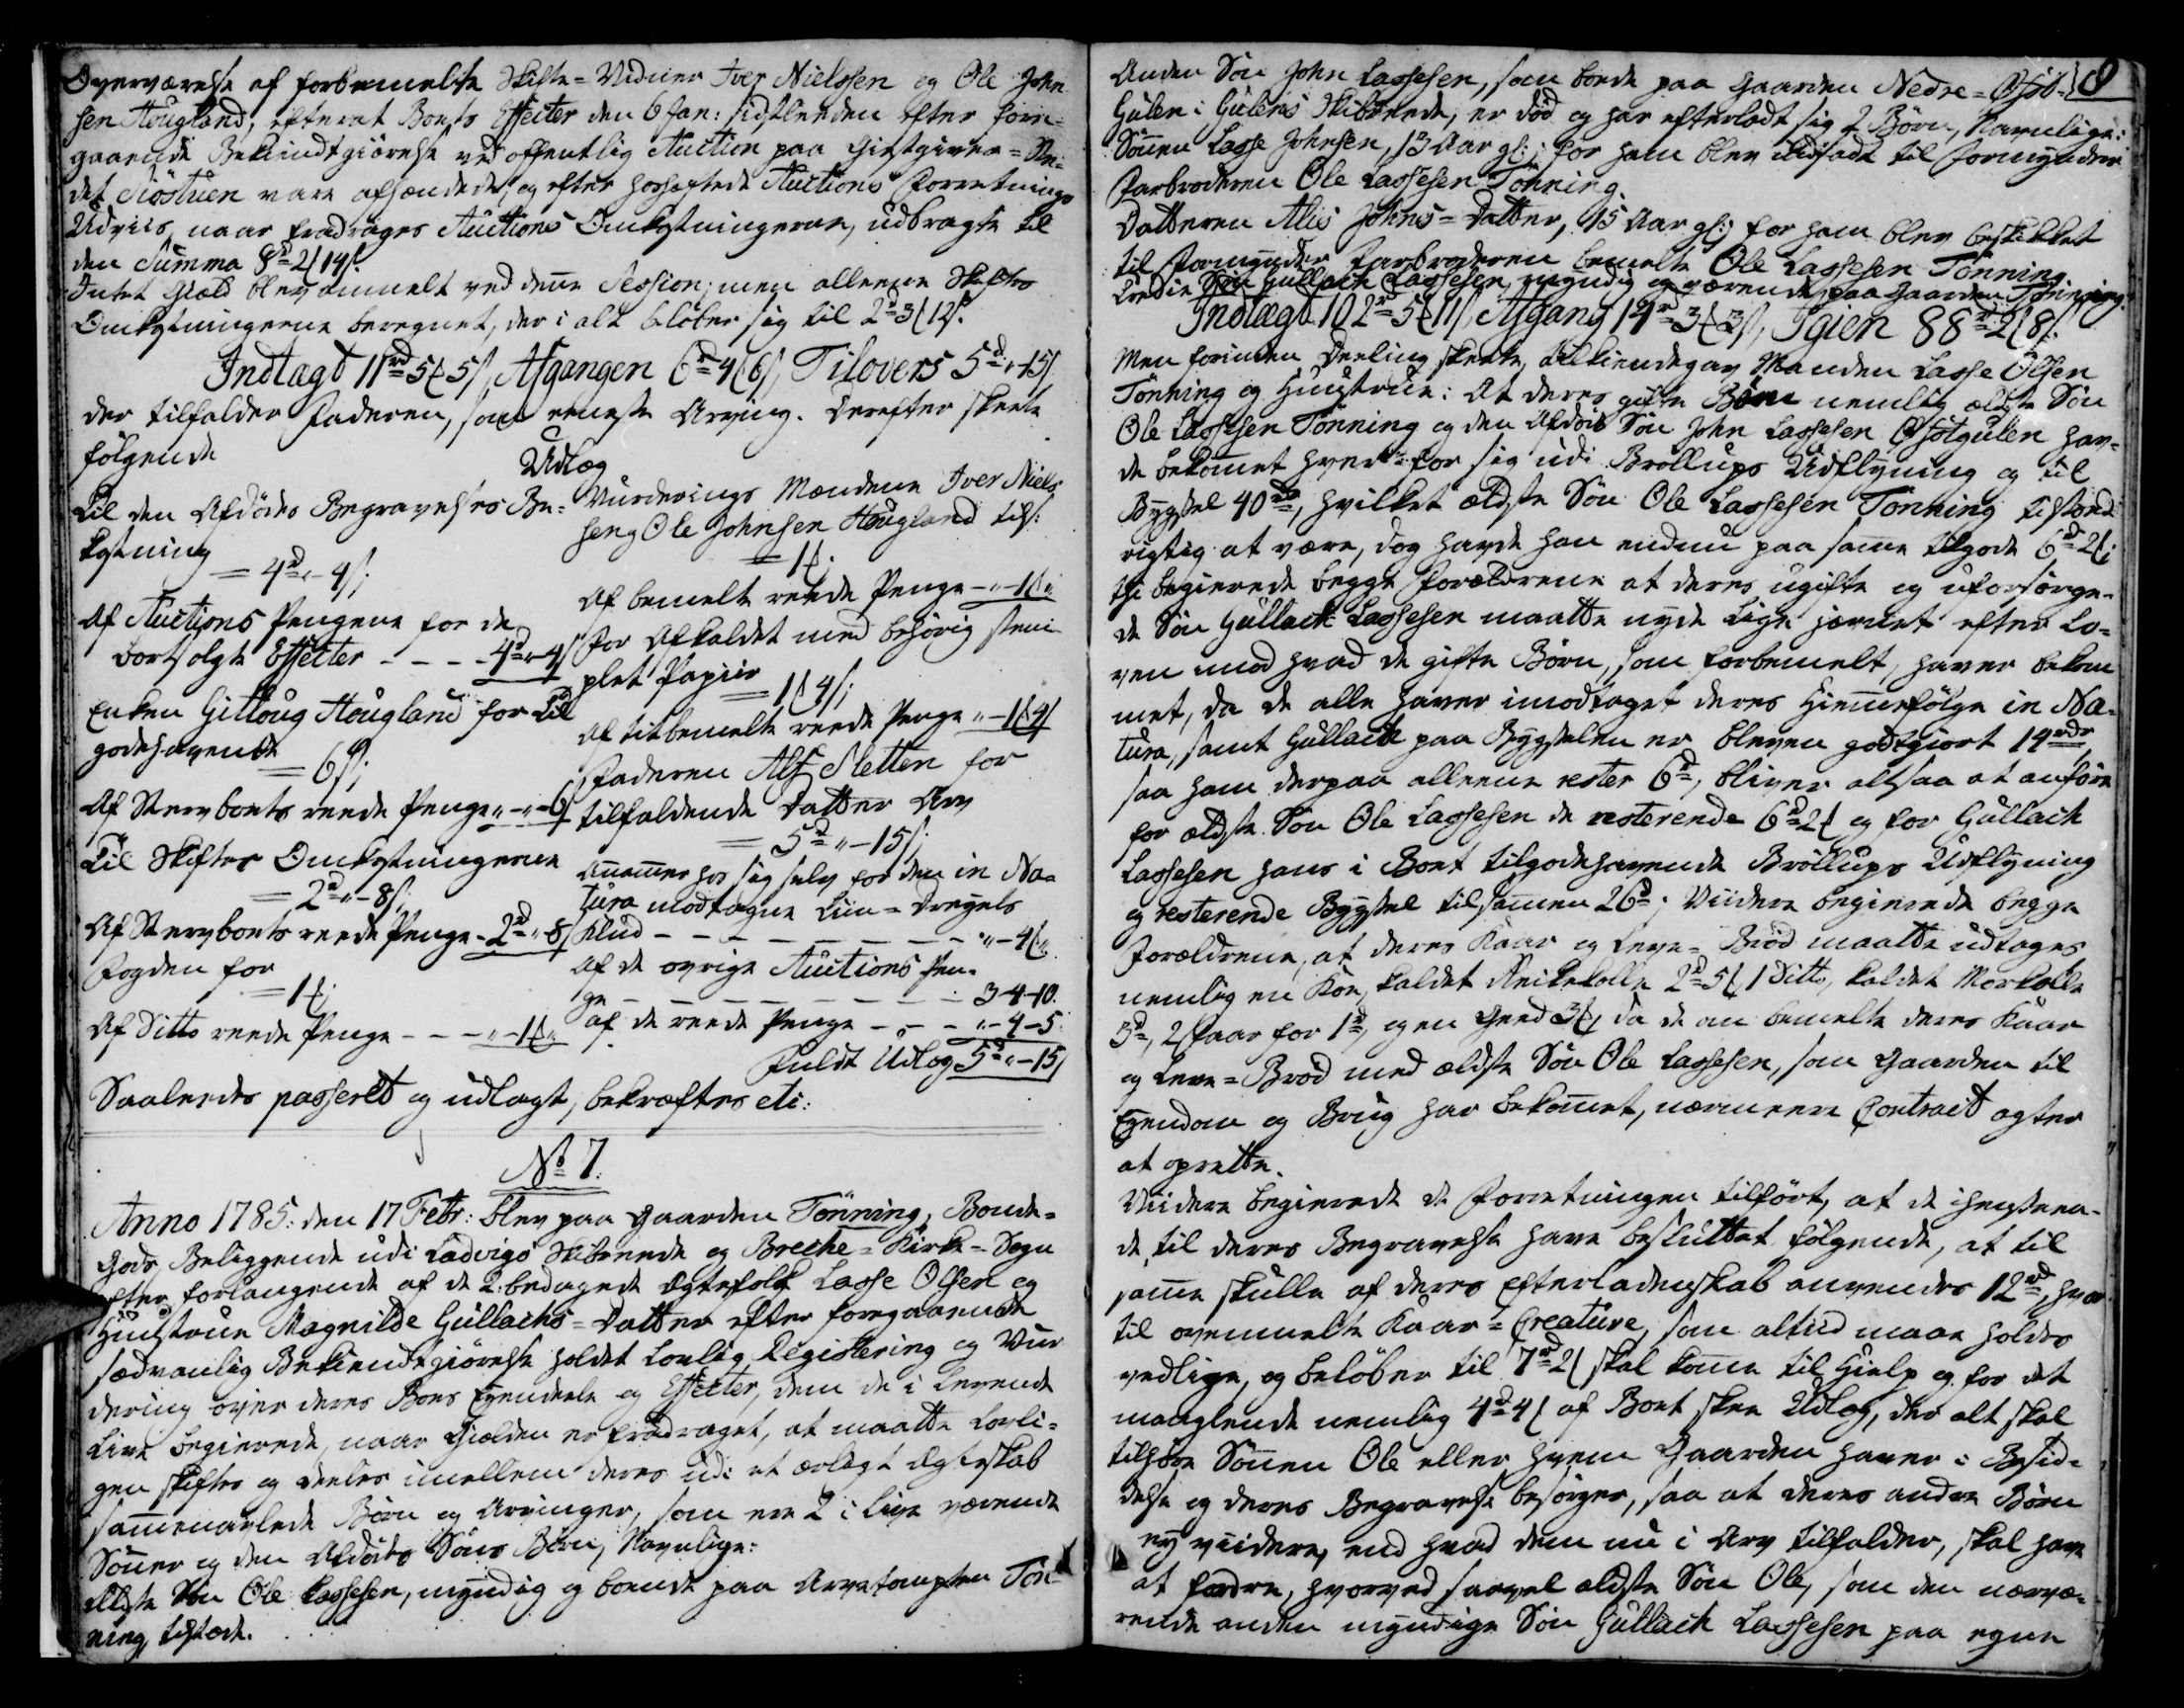 Overværelse af forbemelte Skifte-Vidner Iver Nielssen og Ole John
sen Hougland, efterat Boets Effecter den 6 Jan: sidstleeden efter fore-
gaaende Bekiendtgiørelse ved offentlig Auction paa Giestgiver-Stæ-
det Siöstuen vare afhændede, og efter hoshæftede Auctions Forretnings
Udviis, naar fradrages Auctions Omkostningerne, udbragte til
den Summa 8rd 2ß 14s.
Intet Giæld blev anmelt ved denne Session; men alleene Skiftes
Omkostningerne beregnet, der i alt beløber sig til 2rd 3ß 12s.
Indtægt 11rd 5ß 5s, Afgangen 6rd 4ß 6s, Tilovers 5rd " 15s.
der tilfalder Faderen, som eeneste Arving. Derefter skeede
følgende
Udlæg
Til den Afdødes Begravelses Be-
kostning
= 4rd " 4s;
Af Auctions Pengene for de
bortsolgte Effecter - - - - 4rd " 4s
Enken Gitloug Hougland for Til
godehavende
= 6s;
Af Stervboets reede Penge " - " - 6s
Til Skiftes Omkostningerne
= 2rd " - 8s;
Af Stervboets reede Penge - 2rd " 8s
Fogden for
= 1ß;
Af Ditto reede Penge - - - " - 1ß "
Vurderings Mændene Iver Niels
sen og Ole Johnsen Hougland tils:
= 1ß:
Af bemelte reede Penge - " - 1ß "
For Afkaldet med behörig stem
plet Papiir
= 1ß 4s;
Af titbemelte reede Penge " - 1ß 4s
Faderen Alf Sletten for
tilfaldende Datter Arv
= 5rd " - 15s;
Annammer hos sig selv for den in Na-
tura modtagne Liin-Dregels
Klud - - - - - - - - " - 4ß "
Af de øvrige Auctions Pen-
ge - - - - - - - - 3-4-10.
af de reede Penge - - - " - 4 - 5.
Fuldt Udlæg 5rd " - 15s
Saaledes passeret og udlagt, bekræftes etc:
No 7.
Anno 1785: den 17 Febr: blev paa Gaarden Tönning, Bonde-
Gods, Beliggende udi Ladvigs Skibreede og Breche-Kirke-Sogn
efter forlangende af de 2: bedagede Ægtefolk Lasse Olsen og
Hustrue Magnilde Gullachs-Datter efter foregaaende
sædvanlig Bekiendtgiørelse holdet Lovlig Registering og Vur
dering over deres Boes Eyendeele og Effecter, dem de i Levende
Live begierede, naar Gielden er fradraget, at maatte Lovli-
gen skiftes og deeles imellem deres udi et ærligt Ægteskab
sammenavlede Børn og Arvinger, som ere 2 i Live værende
Sønner og den Afdødes Søns Børn, Navnlige:
Ældste Søn Ole Lassesen, myndig og boende paa Arvetompten Tön-
ning tilstæde.
9
Anden Søn John Lassesen, som boede paa Gaarden Nedre-Østö-
Gulen i Gulens Skibreede, er død og har efterladt sig 2 Børn, Navnlige:
Sønnen Lasse Johnsen, 13 Aar gl: for ham blev tilsadt til Formynder
Farbroderen Ole Lassesen Tönning.
Datteren Alis Johns-Datter, 15 Aar gl: for ham blev beskikket
til Formynder Farbroderen bemelte Ole Lassesen Tönning
Tredie Søn Gullach Lassesen, myndig og værende paa Gaarden Tönning.
Indtægt 102rd 5ß 11s, Afgang 14rd 3ß 3s, Igien 88rd 2ß 8s:
Men forinden Deeling skeede, tilkiendegav Manden Lasse Olsen
Tönning og Hustrue: At deres gifte Børn nemlig ældste Søn
Ole Lassesen Tönning og den Afdöde Søn John Lassesen Östgulen hav-
de bekommet hver for sig udi Bröllups Udflyning og til
Bygsel 40rd, hvilket ældste Søn Ole Lassesen Tönning tilstoed
rigtig at være, dog havde han endnu paa samme tilgode 6rd 2ß;
thi begierede begge Forældrene at deres ugifte og uforsørge-
de Søn Gullach Lassesen maatte nyde Lige jævnet efter Lo-
ven mod hvad de gifte Børn, som forbemelt, haver bekom
met, da de alle haver imodtaget deres Hiemmefølge in Na-
tura, samt Gullach paa Bygselen er bleven godtgiort 14rd,
saa ham derpaa alleene rester 6rd, bliver altsaa at anføre
for ældste Søn Ole Lassesen de resterende 6rd 2ß og for Gullach
Lassesen hans i Boet tilgodehavende Bröllups Udflyning
og resterende Bygsel tilsammen 26rd; Viidere begierede begge
Forældrene, at deres Kaar og Leve-Brød maatte udtages
nemlig en Koe, kaldet Reikekolle 2rd 5ß, 1 Ditto, kaldet Morkolle
3rd, 2 Faar for 1rd, og en Geed 3ß, da de om bemelte deres Kaar
og Leve-Brød med ældste Søn Ole Lassesen, som Gaarden til
Eyendom og Brug har bekommet, nærmere Contract agter
at oprette.
Viidere begierede de Forretningen tilført, at de ihenseen-
de til deres Begravelse have besluttet følgende, at til
samme skulle af deres Efterladenskab anvendes 12rd, hvor
til ovenmelte Kaar-Creature, som altiid maae holdes
vedlige, og beløber til 7rd 2ß skal komme til Hielp og for det
manglende nemlig 4rd 4ß af Boet skee Udlæg, der alt skal
tilhøre Sønnen Ole eller hvem Gaarden haver i Besid-
delse og deres Begravelse besørger, saa at deres andre Børn
ey viidere, end hvad dem nu i Arv tilfalder, skal have
at fordre, hvorved saavel ældste Søn Ole, som den nærvæ-
rende anden myndige Søn Gullach Lassesen paa egne